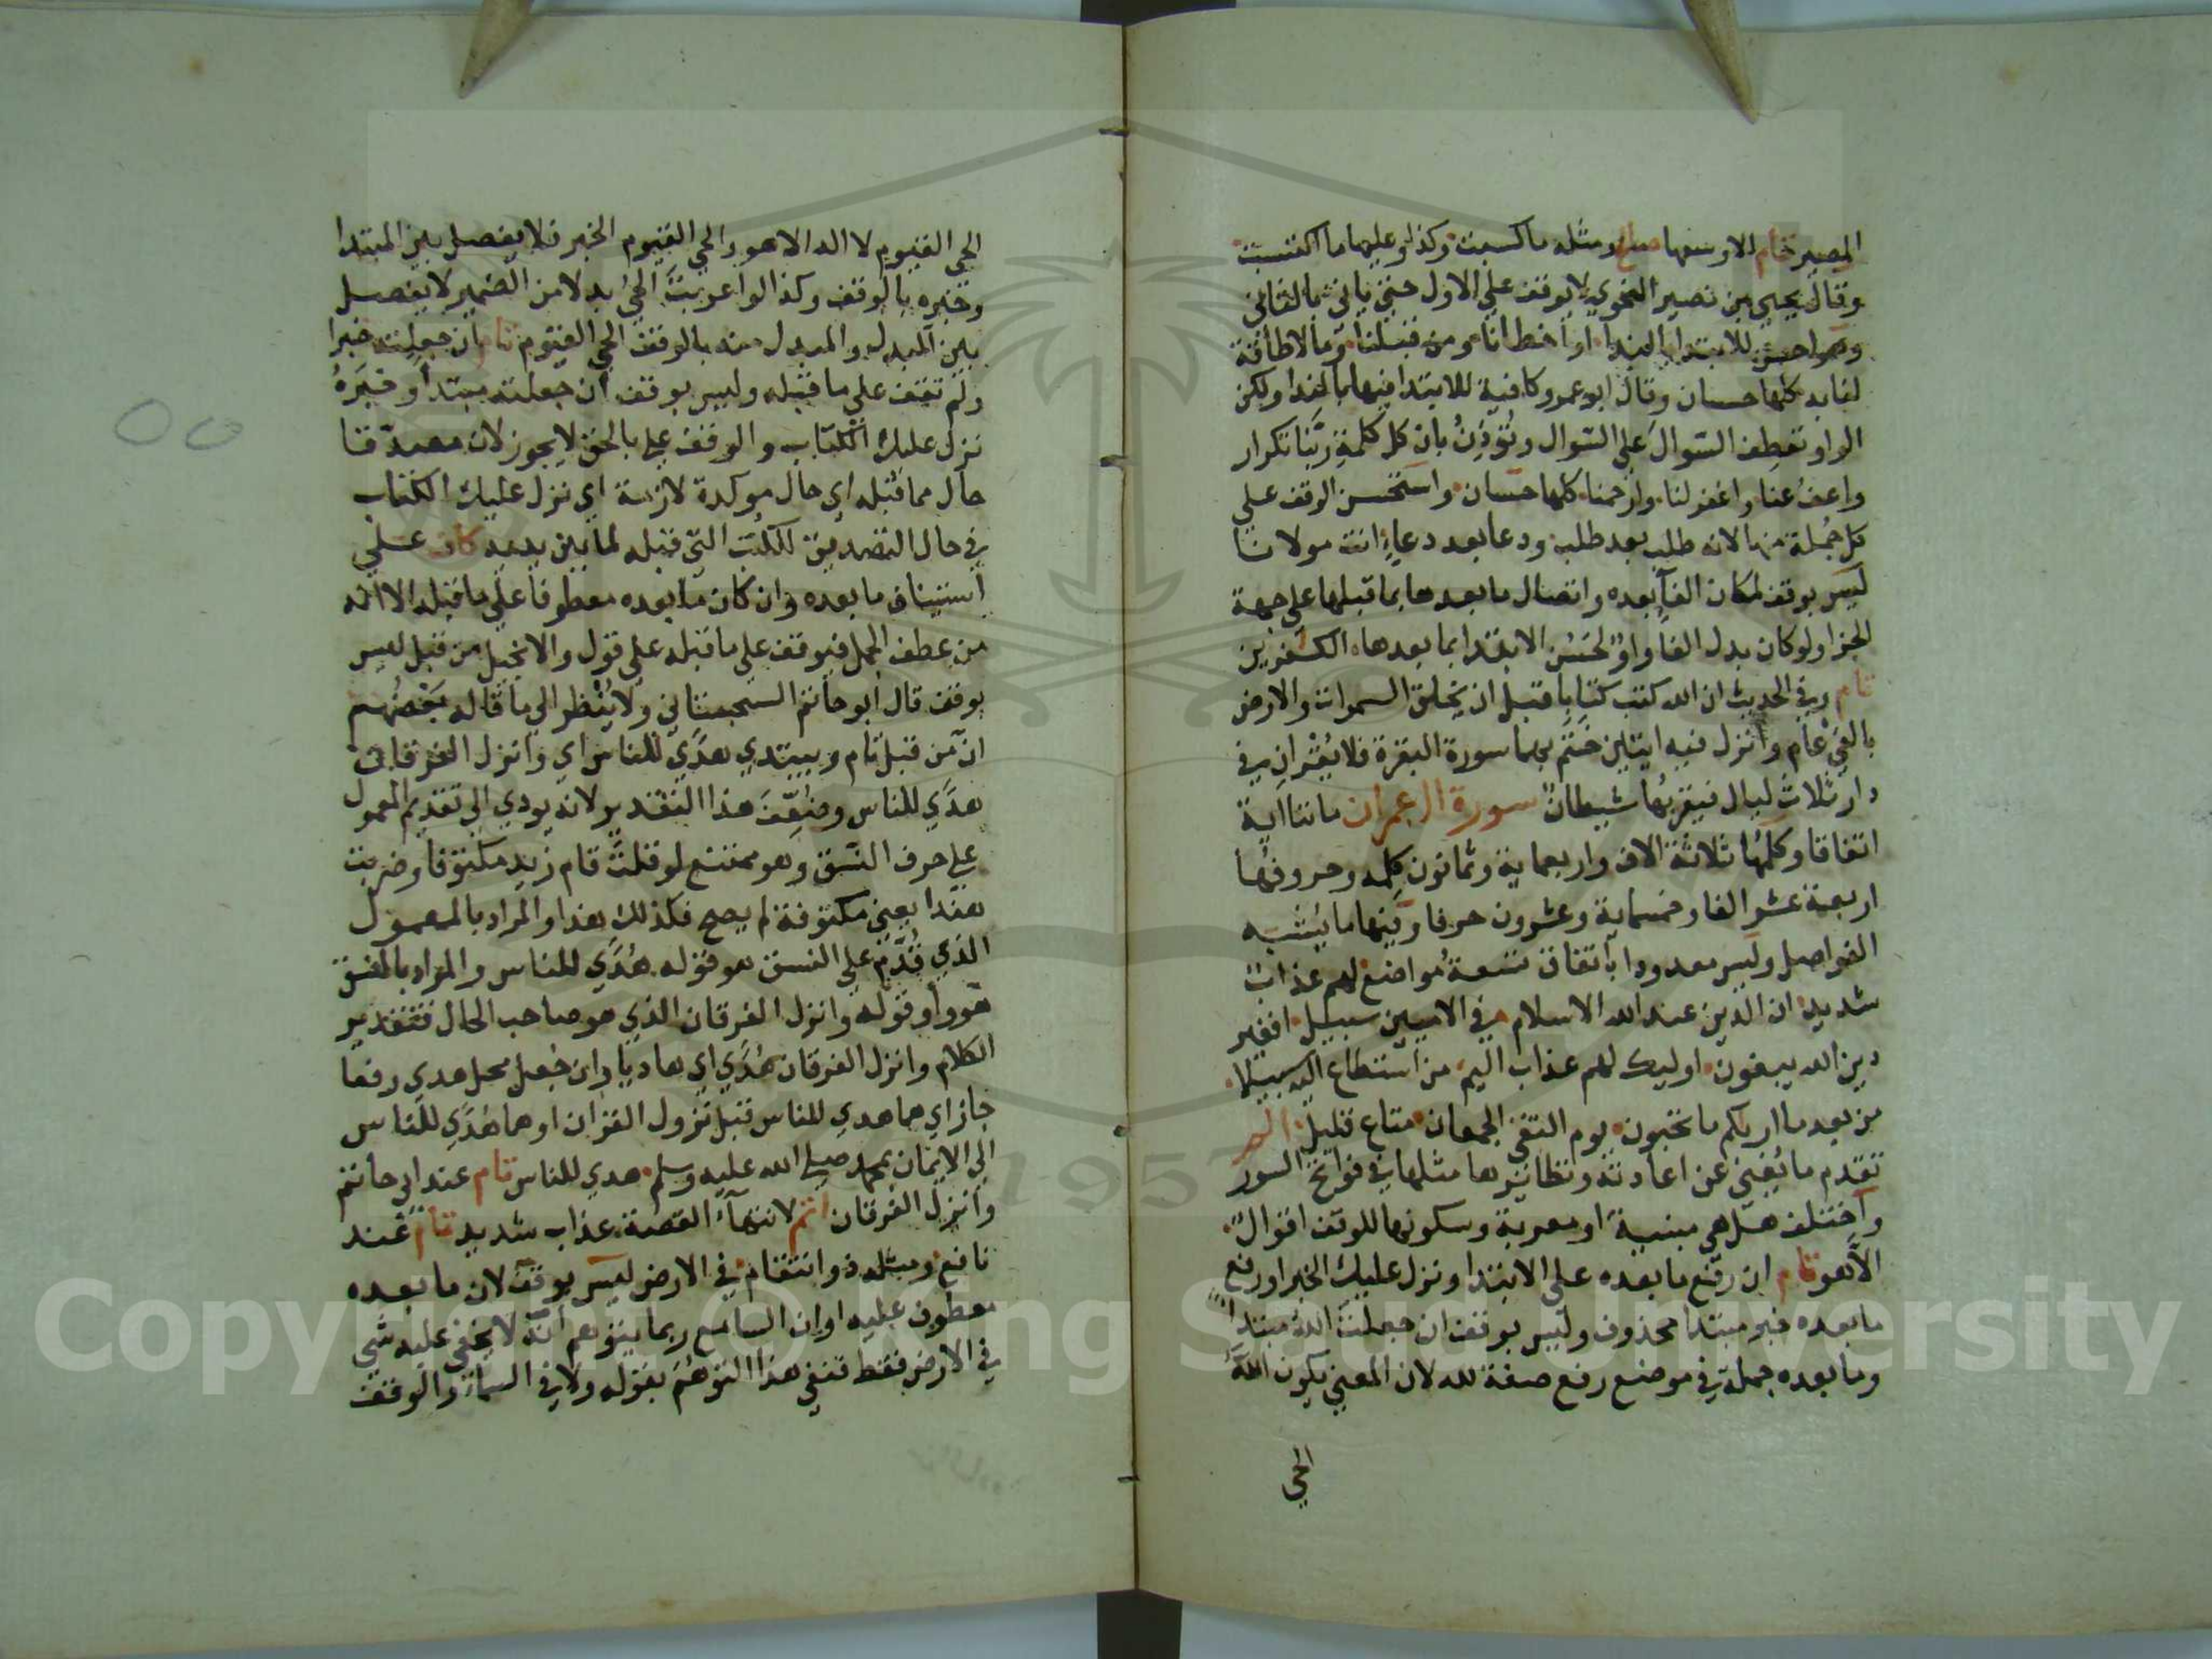 المصير تام الا وسعها صالح ومثله ما كسبت وكذا وعليها ما اكتسبت
وقال يحيى بن نصير النحوي لا يوقف علي الاول حتي ياتي بالثاني
وهو احسن للابتدا بالندا او اخطانا ومن قبلنا وما لا طاقة
لنا به كلها حسان وقال ابو عمرو كافية للابتدا فيها بالندا ولكن
الواو تعطف السّوال علي السّوال وتُؤذِنُ بان كل كلمةٍ ربّنا تكرار
واعفُ عنا واغفر لنا وارحمنا كلها حسان واستحسن الوقف علي
كل جُملة منها لانه طلب بعد طلب ودعا بعد دعاءٍ انت مولانا
ليس بوقف لمكان الفآ بعده واتصال ما بعدها بما قبلها علي جهة
الجزا ولو كان بدل الفا واوٌ لحَسُن الابتدا بما بعدها الكفرين
تام وفي الحديث ان الله كتب كتابا قبل ان يخلق السموات والارض
بالفي عام وانزل فيه ايتين خَتَم بهما سورة البقرة فلا يُقْرَانِ في
دار ثلاث ليال فيقربُها شيطانٌ سورة ال عمران مائتا اية
اتفاقا وكلمُها ثلاثة الاف واربعماية وثمانون كلمه وحروفُها
اربعة عشر الفا وخمسماية وعشرون حرفا وفيها ما يُشبه
الفواصل وليس معدودا بآتفاق تسعةُ مواضع لهم عذاب
شديد ان الدين عند الله الاسلام في الاميين سبيل افغير
دين الله يبغون اوليك لهم عذاب اليم من استطاع اليه سبيلا
من بعد ما اريكم ما تحبون يوم التقي الجمعان متاع قليل الم
تقدم ما يُغني عن اعادته ونظائيرها مثلها في فواتح السور
وآختلف هل هي مبنيةٌ او معربة وسكونها للوقف اقوالٌ
الاّ هو تام ان رفع ما بعده علي الابتدا ونزل عليك الخبر او رفع
ما بعده خبر مبتدا محذوف وليس بوقف ان جعلت الله مبتدا
وما بعده جملة في موضع رفع صفة لله لان المعني يكون اللهُ
الحي
الحي القيوم لا اله الا هو والحي القيوم الخبر فلا يفصل بين المبتدا
وخبره بالوقف وكذا لو اعربتَ الحيُّ بدلا من الضمير لا يفصل
بين المبدل والمبدل منه بالوقف الحي القيوم تام ان جعلته خبرا
ولم تقف علي ما قبله وليس بوقف ان جعلته مبتدا وخبرهُ
نزل عليك الكتاب والوقف علي بالحق لا يجوز لان مصدّقا
حال مما قبله اي حال موكدة لازمة اي نزل عليك الكتاب
في حال التصديق للكتب التي قبله لما بين يديه كاف علي
استيناف ما بعده وان كان ما بعده معطوفا علي ما قبله الا انه
من عطف الجمل فيوقف علي ما قبله علي قول والانجيل من قبل ليس
بوقف قال ابو حاتم السجستاني ولا يُنظر الي ما قاله بَعْضُهم
ان من قبل تام ويبتدي هدًي للناس اي وانزل الفرقان
هدًي للناس وضُعّف هذا التقدير لانه يودي الي تقديم المعمول
علي حرف النسق وهو ممتنع لو قلت قام زيد مكتوفا وضربت
هندا يعني مكتوفة لم يصح فكذلك هذا والمراد بالمعمول
الذي قُدّم علي النسق هو قوله هُدًي للناس والمراد بالنسق
هو واو قوله وانزل الفرقان الذي هو صاحب الحال فتقدير
الكلام وانزل الفرقان هُدًي اي هاديا وان جُعل محل هدي رفعا
جاز اي هما هدي للناس قبل نزول القران او هما هُدًي للناس
الي الايمان بمحمد صلي الله عليه وسلم هدي للناس تام عند ابي حاتم
وانزل الفرقان اتم لانتهآء القصة عذاب شديد تام عند
نافع ومثله ذو انتقام في الارض ليس بوقف لان ما بعده
معطوف عليه او ان السامع ربما يتوهم أنّه لا يخفي عليه شي
في الارض فقط فنفي هذا التوهُّم بقوله ولا في السماء والوقف
Copyright © King Saud University
1957